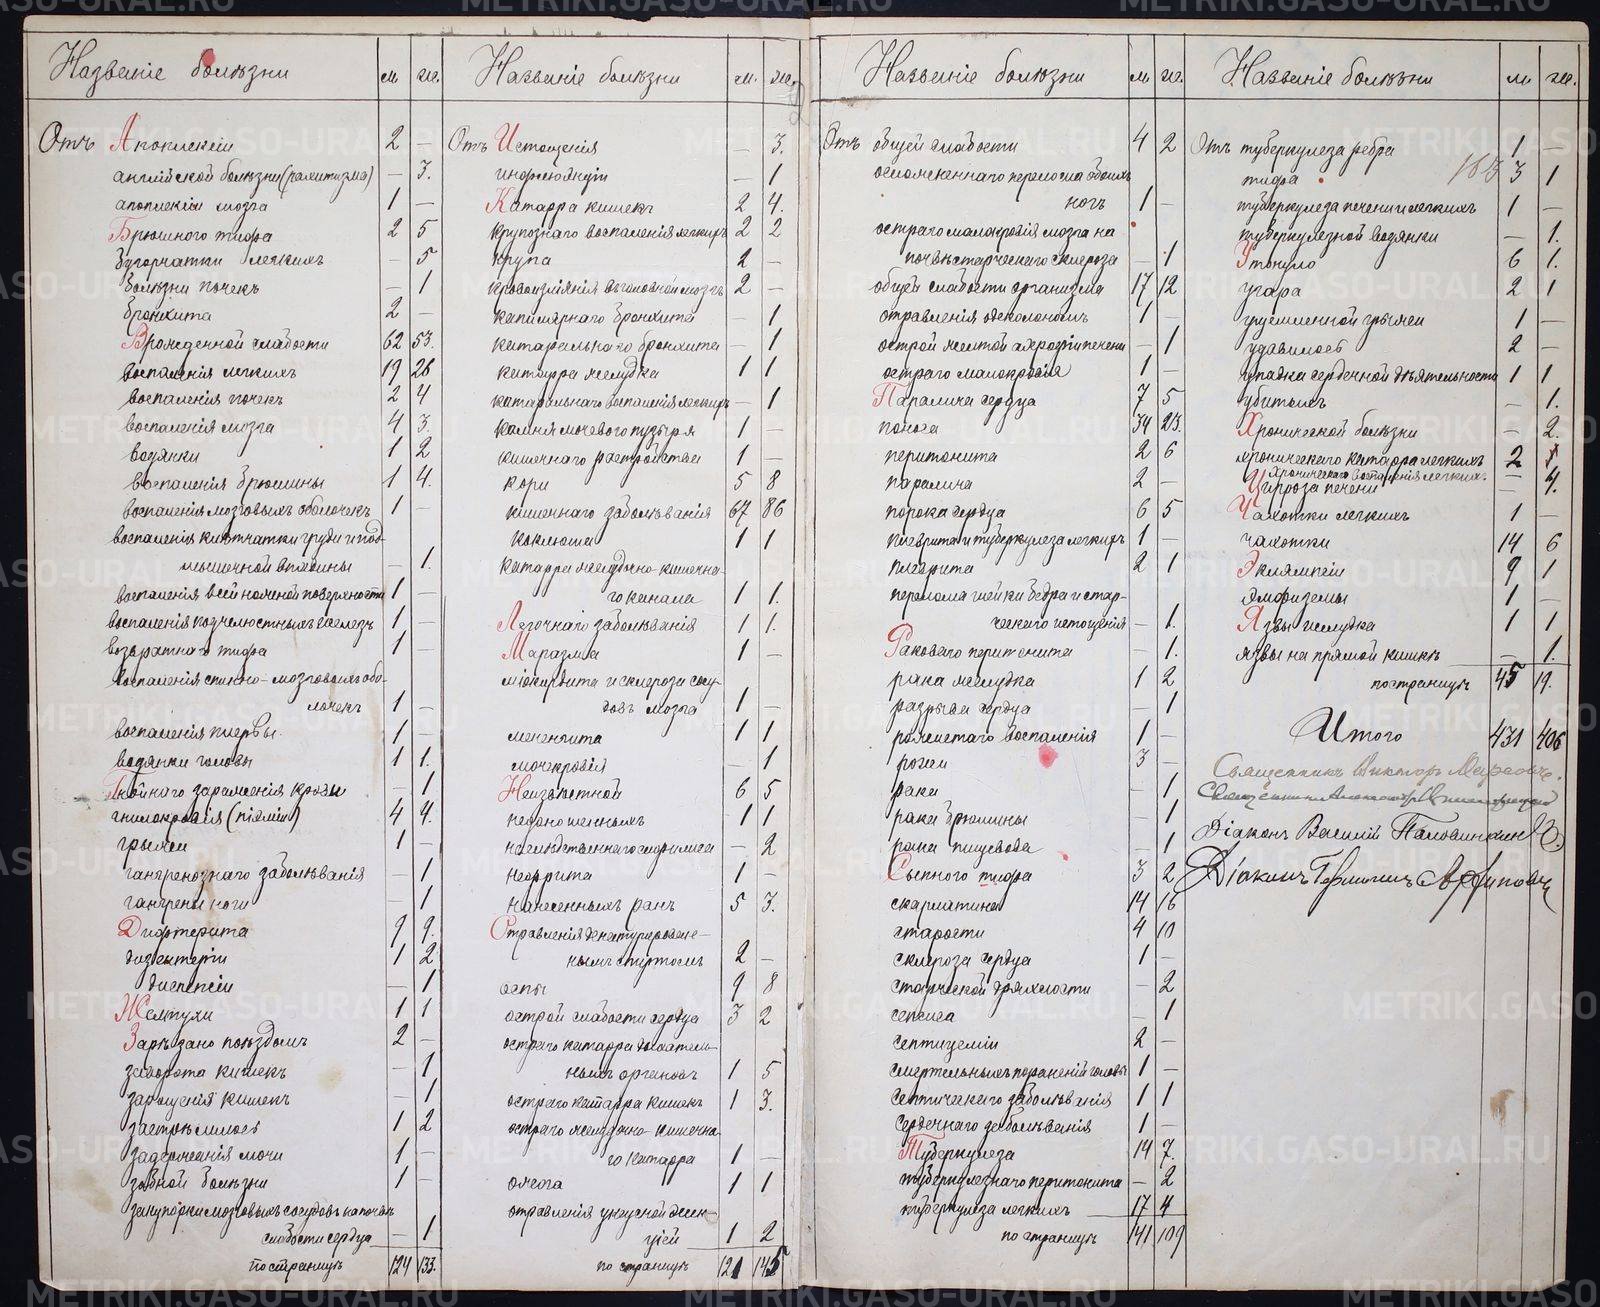 Названіе болѣзни м ж.
Отъ Апоплексіи 2 —
англійской болѣзни (рахитизма) — 3.
апоплексіи мозга 1 —
Брюшного тифа 2 5
бугорчатки легкихъ — 5
болѣзни почекъ — 1
бронхита 2 —
Врожденной слабости 62 53.
воспаленія легкихъ 19 26
воспаленія почекъ 2 4
воспаленія мозга 4 3.
водянки 1 2
воспаленія брюшины 1 4.
воспаленія мозговыхъ оболочекъ 1 —
воспаленія клѣтчатки груди и под-
мышечной впадины — 1.
воспаленія всей кожной поверхности 1 —
воспаленія подчелюстныхъ железъ 1 —
возвратнаго тифа 1 —
Воспаленія спинно-мозговыхъ обо-
лочекъ 1 —
воспаленія плевры 1 —
водянки головы 1 1.
Гнойного зараженія крови — 1
гнилокровія (піэміи) 4 4.
грыжи 1 —
гангренознаго заболѣванія — 1
гангрены ноги — 1
Дифтерита 9 9.
дизентеріи 1 2
диспепсіи — 1
Желтухи 1 1
Зарѣзано поѣздомъ 2 —
заворота кишекъ — 1
зарощенія кишекъ — 1
застрѣлилось 1 2
задержанія мочи 1 —
зобной болѣзни 1 —
закупорки мозговыхъ сосудовъ на почвѣ
слабости сердца — 1
по страницѣ 124 133.
Названіе болѣзни м. ж.
Отъ Истощенія — 3.
инфлюэнціи — 1
Катарра кишекъ 2 4.
крупознаго воспаленія легкихъ 2 2
крупа 2 —
кровоизліянія въ головной мозгъ 2 —
капилярнаго бронхита — 1
катаральнаго бронхита — 1
катарра желудка 1 1
катаральнаго воспаленія легкихъ — 1
камня мочевого пузыря 1 —
кишечнаго разстройства 1 —
кори 5 8
кишечнаго заболѣванія 67 86
коклюша 1 1
катарра желудочно-кишечна-
го канала 1 1.
Легочнаго заболѣванія 1 1.
Маразма 1 —
міокардита и склероза сосу-
довъ мозга 1 —
менингита 1 1
мочекровія — 1
Неизвѣстной 6 5
недоношенныхъ 1 1
наслѣдственнаго сифилиса — 2
нефрита 1 —
нанесенныхъ ранъ 5 3.
Отравленія денатурирован-
нымъ спиртомъ 2 —
оспы 9 8
острой слабости сердца 3 2
остраго катарра дыхатель-
ныхъ органовъ 1 5
остраго катарра кишекъ 1 3.
остраго желудочно-кишечна-
го катарра 1 —
ожога 1 1
отравленія уксусной эссен-
ціей 1 2
по страницѣ 121 145
Названіе болѣзни м ж.
Отъ общей слабости 4 2
осложненнаго перелома обѣихъ
ногъ 1 —
остраго малокровія мозга на
почвѣ старческаго склероза — 1
общей слабости организма 17 12
отравленія одеколономъ 1 —
острой желтой атрофіи печени — 1
остраго малокровія 1 —
Паралича сердца 7 5
поноса 34 23.
перитонита 2 6
паралича 2 —
порока сердца 6 5
плеврита и туберкулеза легкихъ 1 —
плеврита 2 1
перелома шейки бедра и стар-
ческаго истощенія — 1.
Раковаго перитонита — 1.
рака желудка 1 2
разрыва сердца — 1
рожистаго воспаленія 1 —
рожи 3 —
рака — 1
рака брюшины — 1
рака пищевода — 1
Сыпного тифа 3 2
скарлатины 14 16
старости 4 10
склероза сердца 1 —
старческой дряхлости — 2
сепсиса — 1
септицеміи 2 —
смертельныхъ пораненій головы 1 —
септическаго заболѣванія 1 1
сердечнаго заболѣванія 1 —
Туберкулеза 14 7.
туберкулезнаго перитонита — 2
туберкулеза легкихъ 17 4
по страницѣ 141 109
Названіе болѣзни м ж.
Отъ туберкулеза ребра 1 —
тифа 3 1
туберкулеза печени и легкихъ 1 —
туберкулезной водянки — 1.
Утонуло 6 1.
угара 2 1
ущемленной грыжи 1 —
удавилось 2 —
упадка сердечной дѣятельности 1 1
убитыхъ — 1.
Хронической болѣзни — 2.
хроническаго катарра легкихъ 2 1
хроническаго воспаленія легкихъ.
Цирроза печени — 4.
Чахотки легкихъ 1 —
чахотки 14 6
Эклямпсіи 9 1
эмфиземы 1 —
Язвы желудка 1 1
язвы на прямой кишкѣ — 1.
по страницѣ 45 19.
Итого 431 406
Священникъ Викторъ
Діаконъ Василій
Діаконъ
METRIKI.GASO-URAL.RU